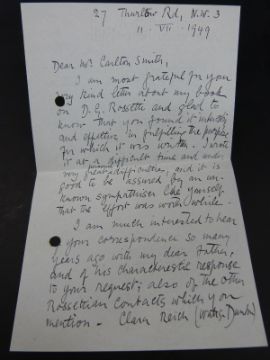 27 Thurlow Rd, N.W.3
11 - VII - 1949
Dear Mr Carlton Smith,
I am most grateful for your
very kind letter about my book
on D.G. Rossetti and glad to
know that you found it interesting
and effective in fulfilling the purpose
for which it was written. I wrote
it at a difficult time and under
very great difficulties, and it is
good to be assured by an un-
known sympathiser like yourself
that the effort was worth while.
I am much interested to hear
of your correspondence so many
years ago with my dear father,
and of his characteristic response
to your request; also of the other
Rossettian contacts which you
mention - Clara (Watts-Dunton)